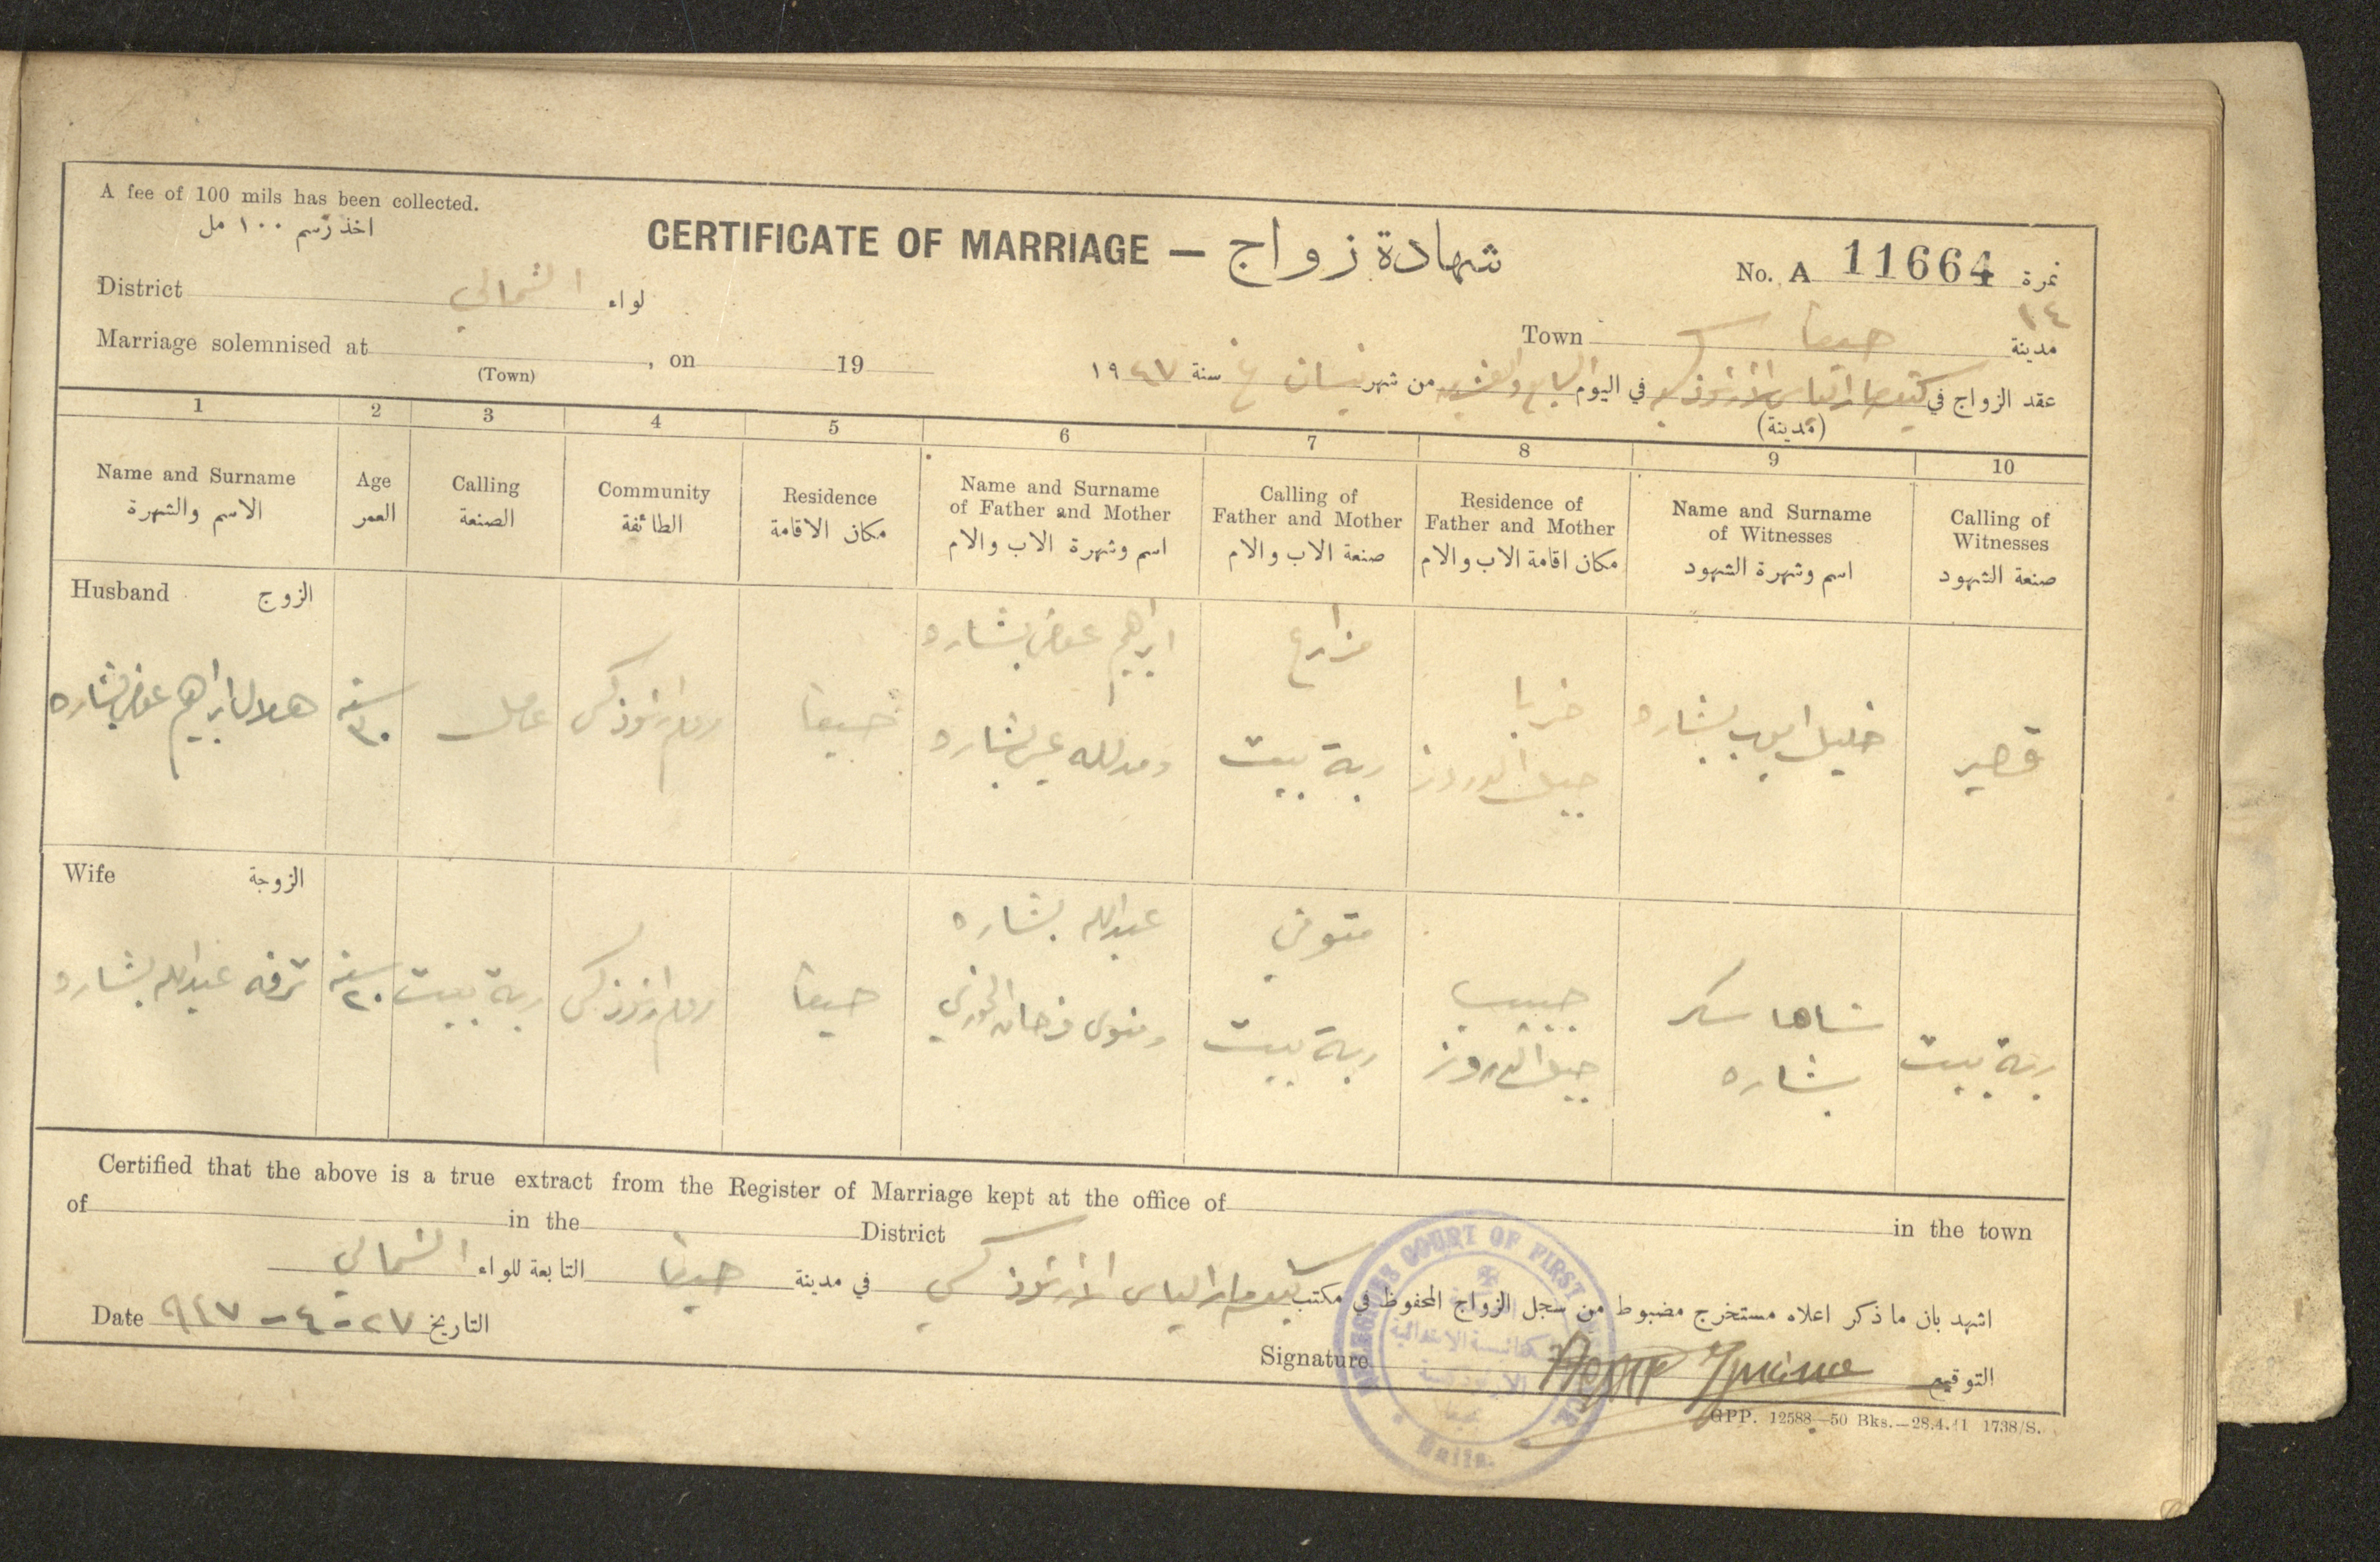 A fee of 100 mils has been collected.
اخذ رسم ١٠٠ مل
CERTIFICATE OF MARRIAGE — شهادة زواج
No. A 11664 نمرة
١٤
District الشمالي لواء
Town حيفا مدينة
Marriage solemnised at , on 19
(Town)
عقد الزواج في كنيسة مار الياس الارثوذكسية في اليوم السابع والعشرين من شهر نيسان غ سنة ١٩٤٧
(مدينة)
1 2 3 4 5 6 7 8 9 10
Name and Surname
الاسم والشهرة
Age
العمر
Calling
الصنعة
Community
الطائفة
Residence
مكان الاقامة
Name and Surname
of Father and Mother
اسم وشهرة الاب والام
Calling of
Father and Mother
صنعة الاب والام
Residence of
Father and Mother
مكان اقامة الاب والام
Name and Surname
of Witnesses
اسم وشهرة الشهود
Calling of
Witnesses
صنعة الشهود
Husband الزوج
هلال ابراهيم عوض بشاره
سنة
٣٠
عامل
روم ارثوذكس
حيفا
ابراهيم عوض بشاره
عيسى بشاره
مزارع
ربة بيت
خربا
جبل الدروز
خليل ايوب بشاره
قصير
Wife الزوجة
ترفه عبدالله بشاره
سنة
٢٠
ربة بيت
روم ارثوذكس
حيفا
عبدالله بشاره
فرحان الخوري
متوفي
ربة بيت
جبيب
جبل الدروز
شاها سكر
بشاره
ربة بيت
Certified that the above is a true extract from the Register of Marriage kept at the office of in the town
of in the District
اشهد بان ما ذكر اعلاه مستخرج مضبوط من سجل الزواج المحفوظ في مكتب كنيسة مار الياس الارثوذكسي في مدينة حيفا التابعة للواء الشمالي
Date ٢٧-٤-٩٤٧ التاريخ
Signature التوقيع
RELIGIOUS COURT OF FIRST
الكنائسية الابتدائية
الارثوذكسية
Haifa.
GPP. 12588—50 Bks.—28.4.41 1738/S.